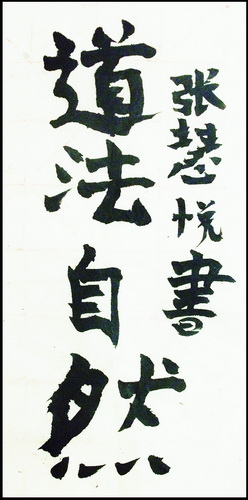 道法自然
张慧悦書